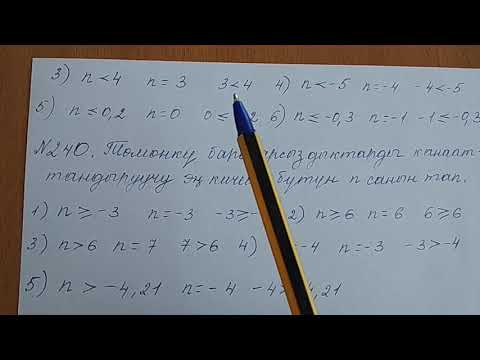 3) n < 4 n = 3 3 < 4 4) n < -5 n = -4 -4 < -5
5) n ≤ 0,2 n = 0 0 ≤ 2 6) n ≤ -0,3 n = -1 -1 ≤ -0,3
№240. Төмөнкү барабарсыздыктарды канаат-
тандыруучу эң кичине бүтүн n санын тап.
1) n ≥ -3 n = -3 -3 ≥ - 2) n ≥ 6 n = 6 6 ≥ 6
3) n > 6 n = 7 7 > 6 4) -4 n = -3 -3 > -4
5) n > -4,21 n = -4 -4 > 4,21